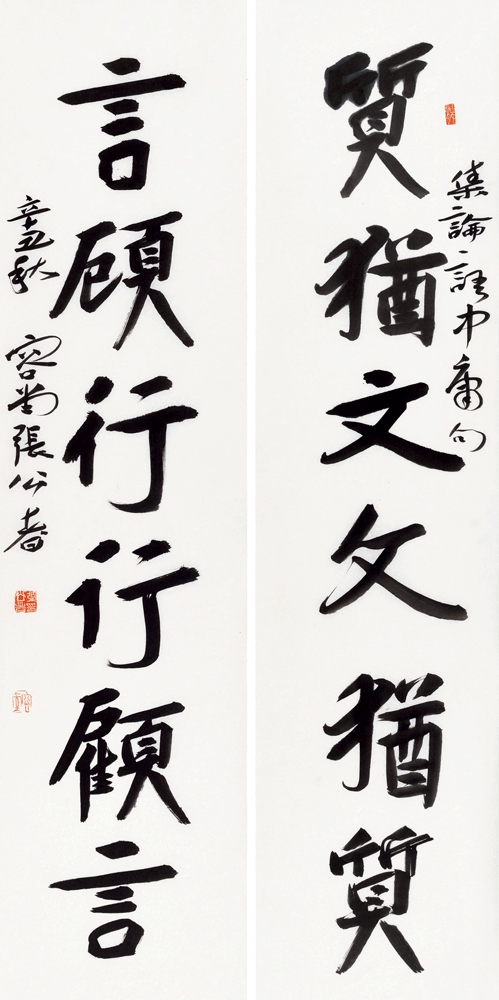 集論語中庸句
質猶文文猶質
言顾行行顧言
辛丑秋 容堂張公者